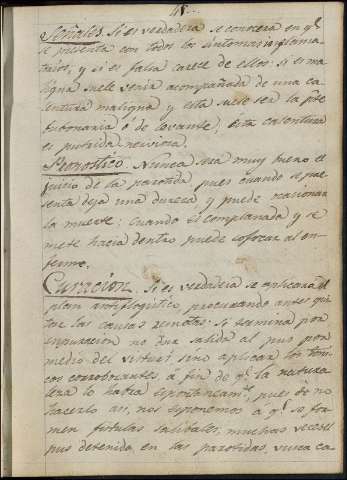 48..
Señales. Si es verdadera se conocerá en q.e
se presenta con todos los sintomas inflama-
torios, y si es falsa carece de ellos: si es ma-
ligna suele venir acompañada de una ca-
lentura maligna y esta suele ser la
ó de levante; esta calentura
es putrida nerviosa.
Pronostico. Nunca sera muy bueno el
juicio de la parotida pues cuando se pre-
senta deja una dureza y puede
la muerte: cuando es complanada y se
mete hacia dentro puede sofocar al en-
fermo.
Curacion. Si es verdadera se aplicara el
plan antiflogistico procurando antes qui-
tar las causas remotas: si termina por
supuracion no dar salida al pus por
medio del visturi sino aplicar los toni-
cos corroborantes á fin de q.e la natura-
leza lo habra espontaneam.te, pues de no
hacerlo asi, nos esponemos á q.e se for-
men fistulas salibales; muchas veces el
pus detenido en las parotidas, busca ca-